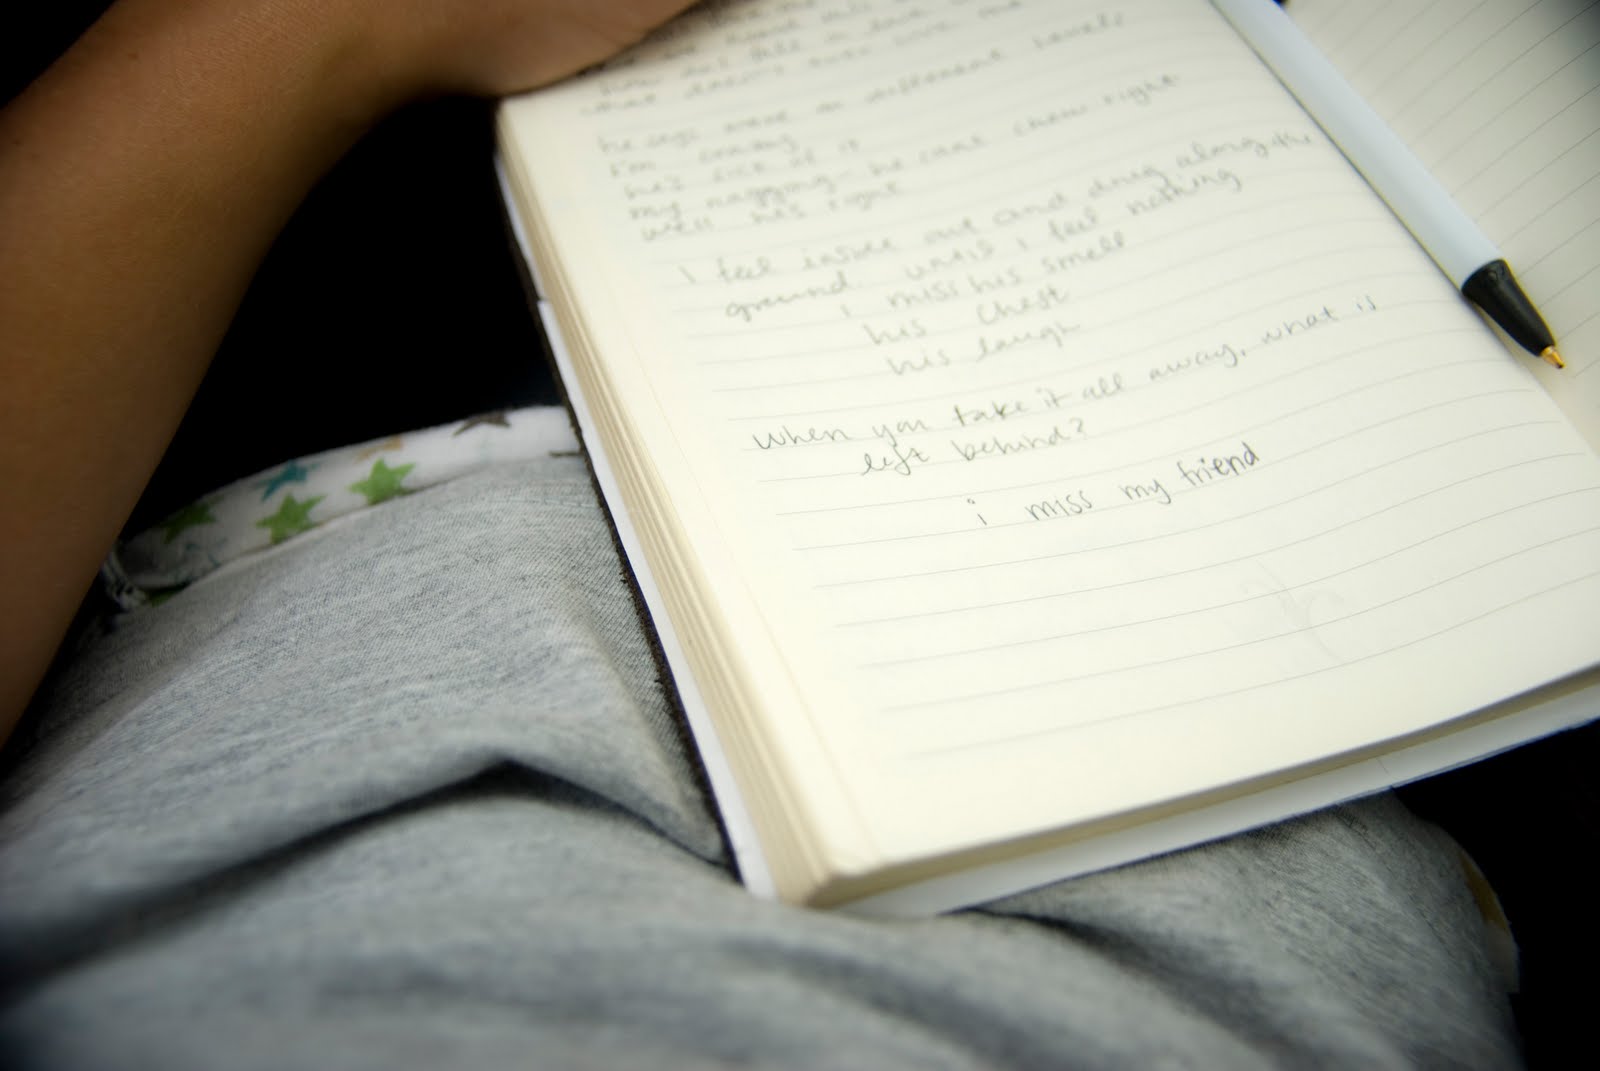 he says we're on different levels
i'm crazy
he's sick of it
my nagging - he cant chew right
well he's right
I feel inside out and drug along the
ground. until i feel nothing
i miss his smell
his chest
his laugh
when you take it all away, what is
left behind?
i miss my friend